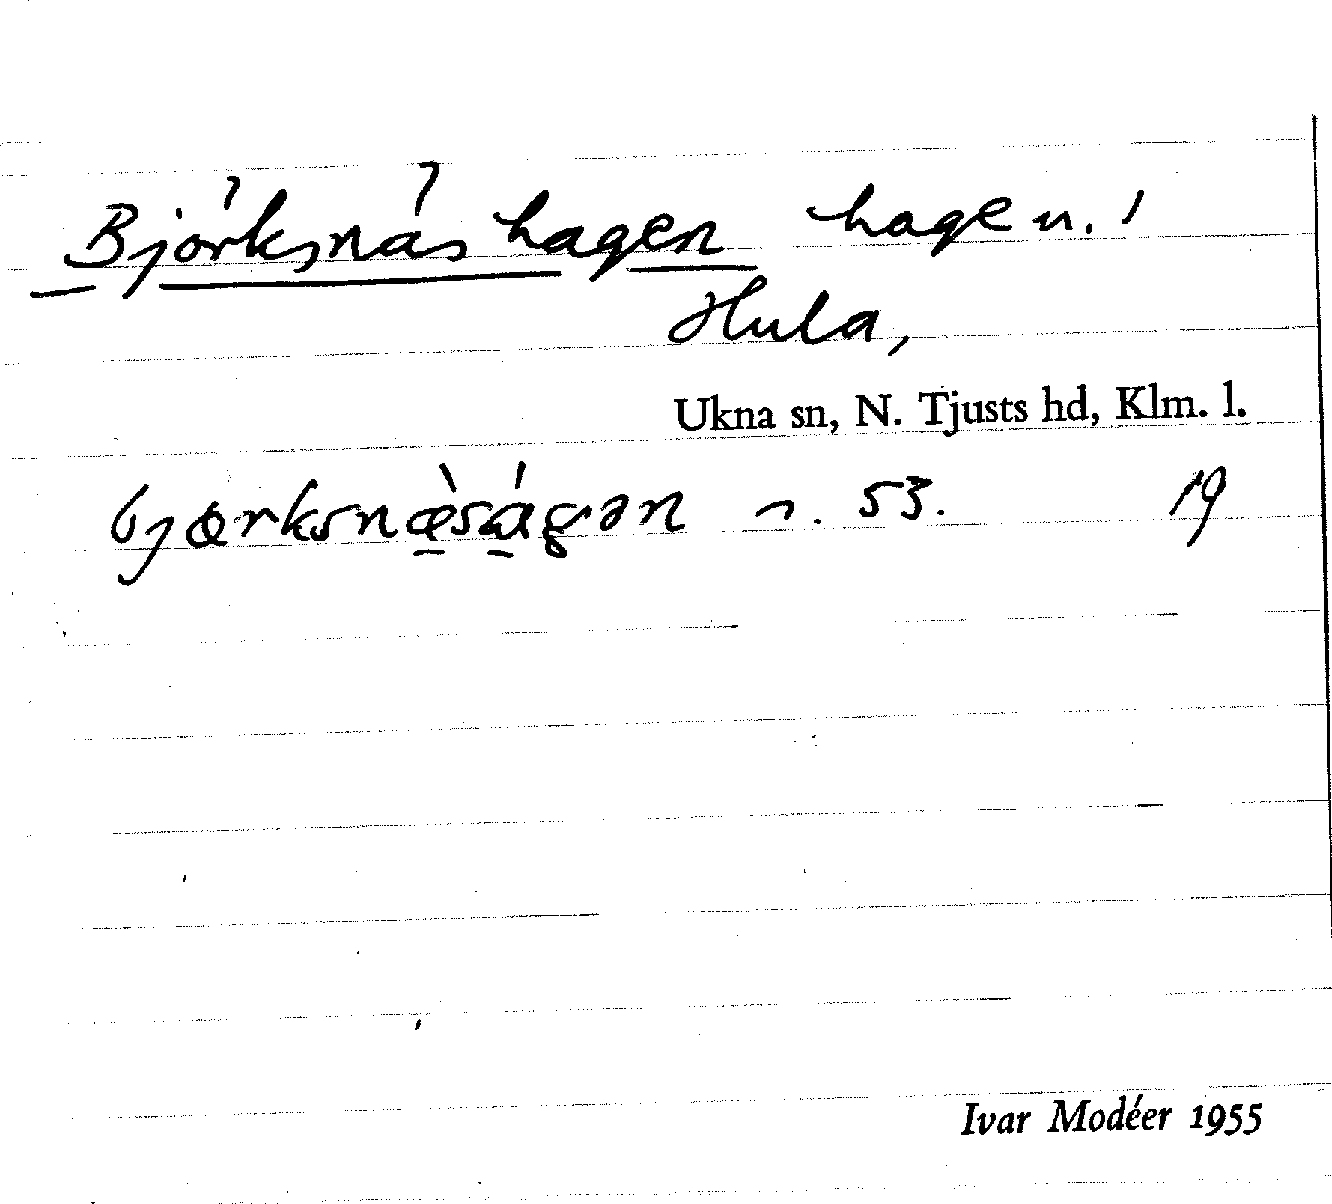 Björksnäshagen hagen.
Hula,
Ukna sn, N. Tjusts hd, Klm. l.
bjœrksnæ̀ságən n. 53. 19
Ivar Modéer 1955